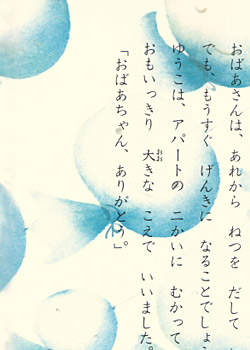 おばあさんは、あれから ねつを だして
でも、もうすぐ げんきに なることでしょ
ゆうこは、アパートの 二かいに むかって
おもいっきり 大きな こえで いいました。
「おばあちゃん、ありがとう。」